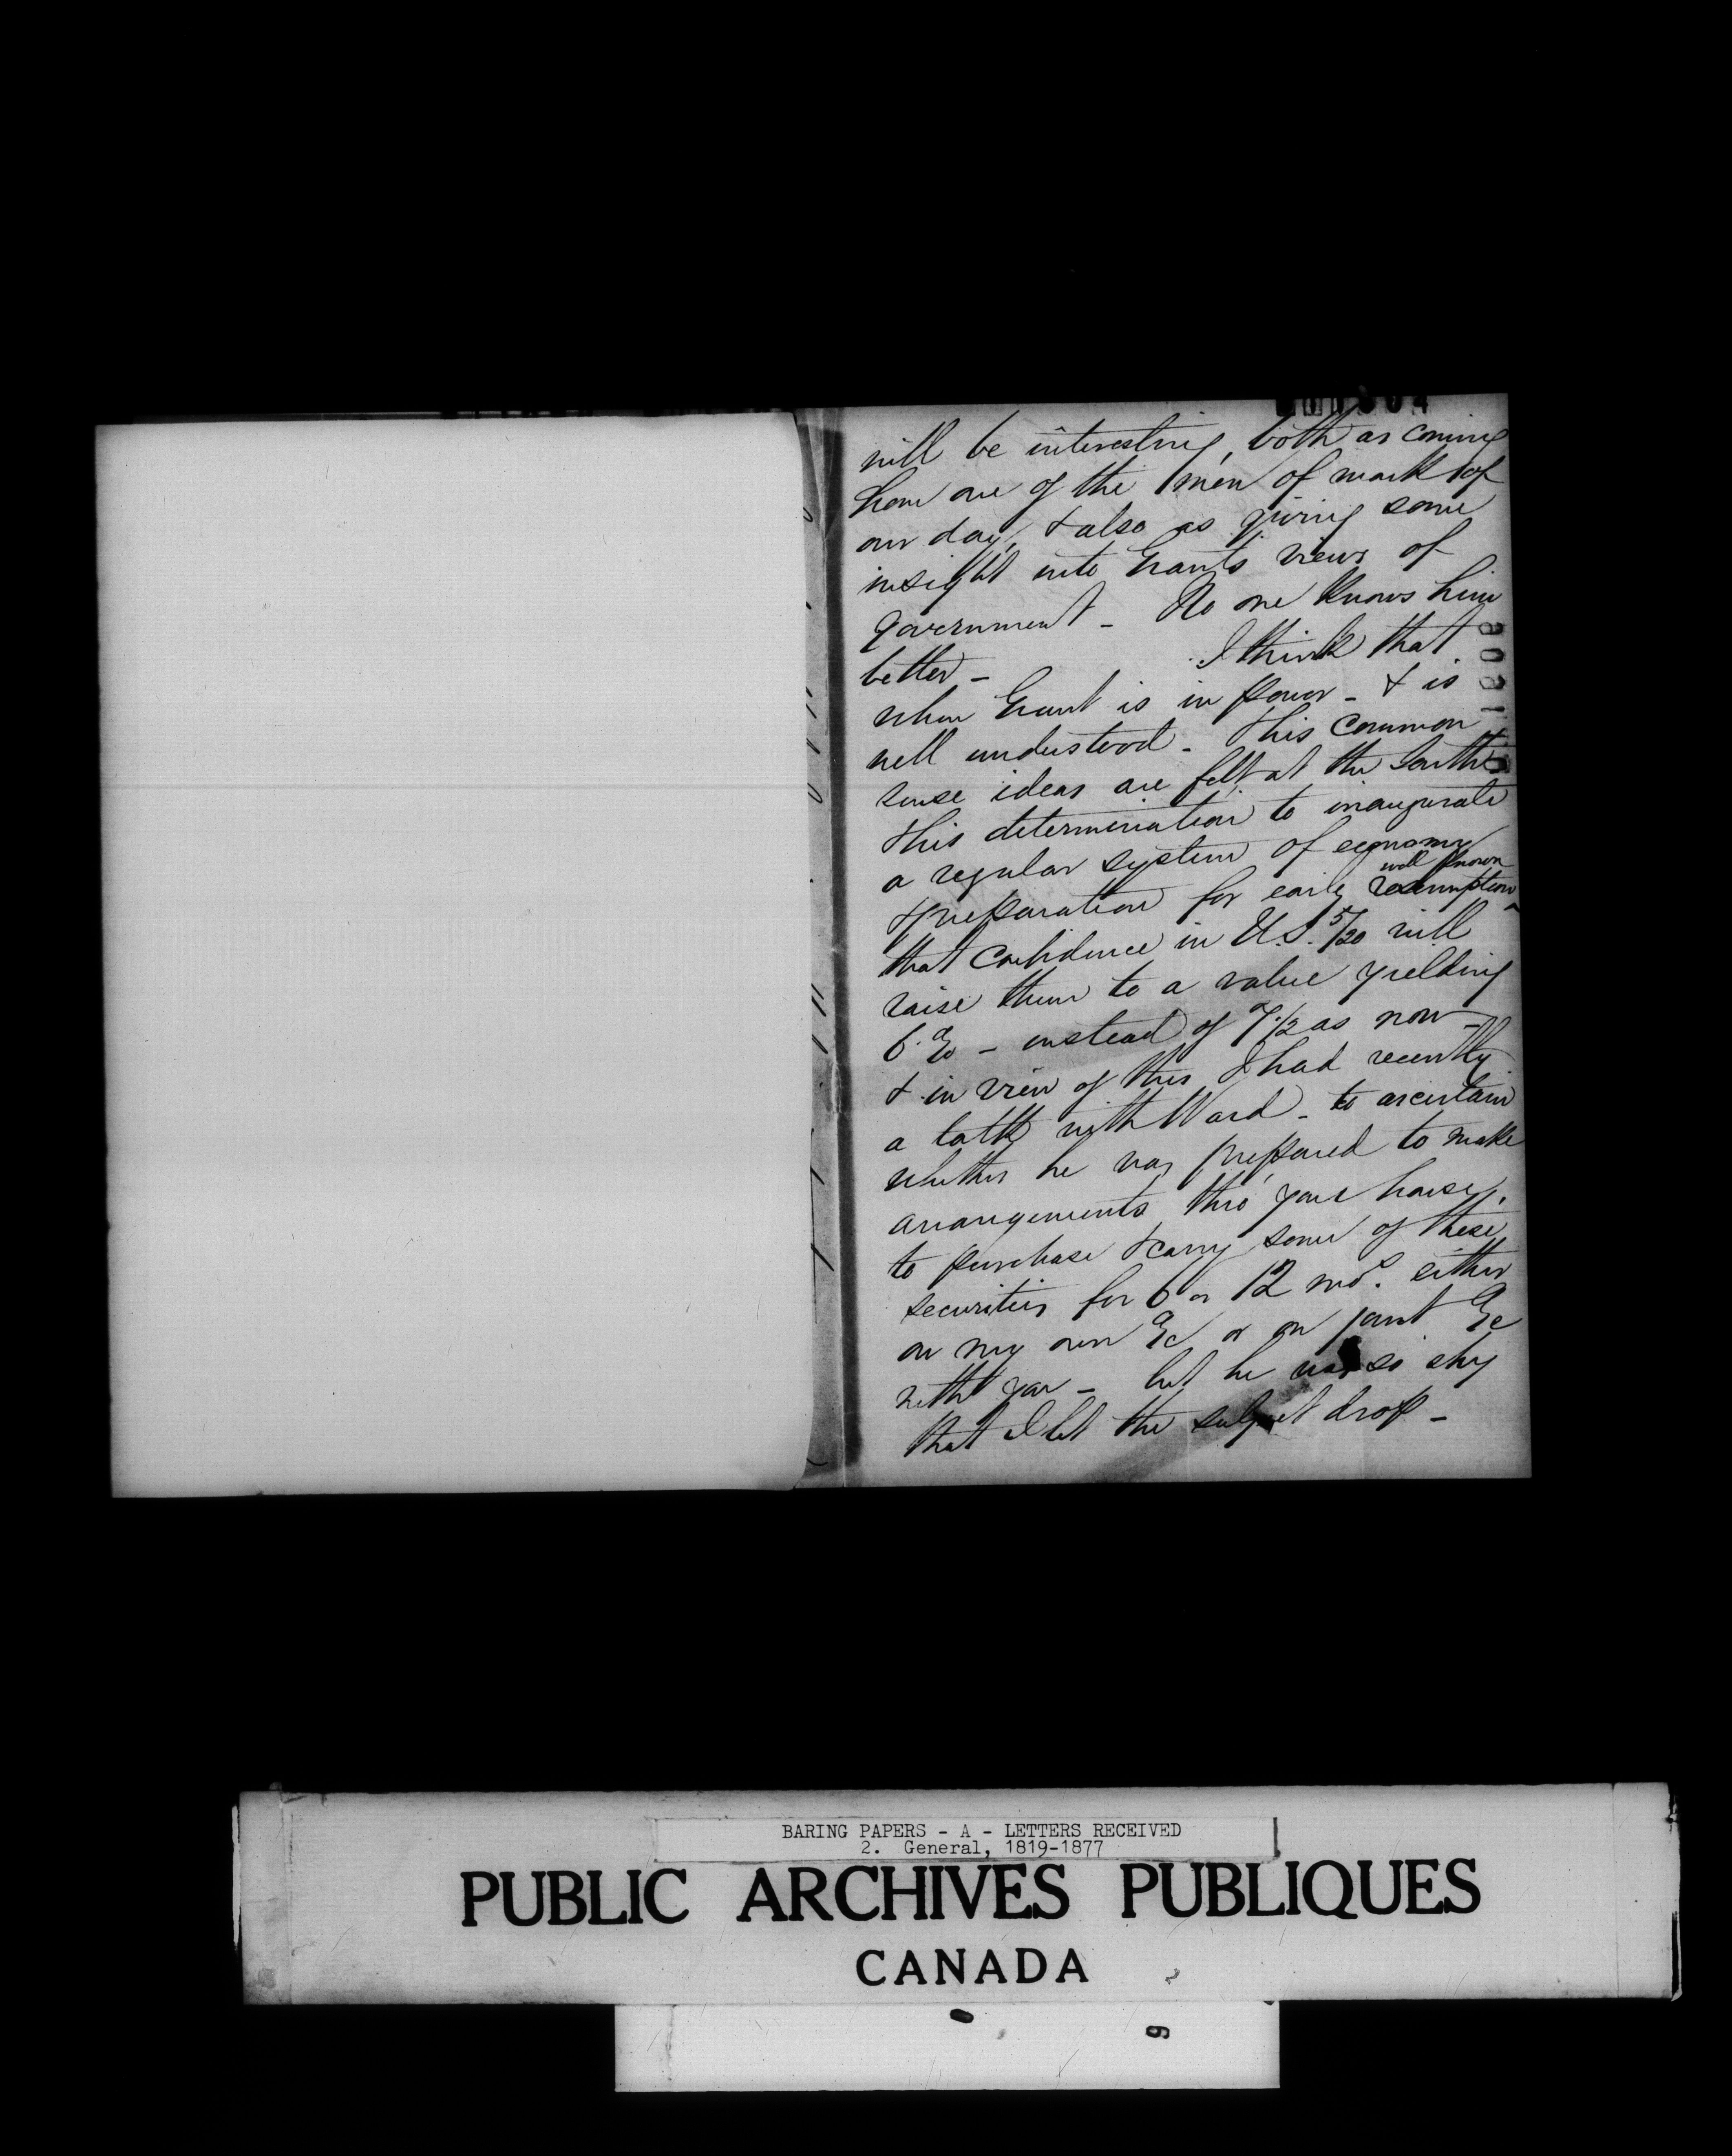 will be interesting, both as coming
from one of the men of mark of
our day, & also as giving some
insight into Grants views of
government - No one knows him
better - I think that
when Grant is in power - & is
well understood - & his common
sense ideas are felt at the South
& his determination to inaugurate
a regular system of economy
& preparation for early resumption
well known
that confidence in U.S. 5/20 will
raise them to a value yielding
6 % - instead of 7 1/2 as now -
& in view of this I had recently
a talk with Ward - to ascertain
whether he was prepared to make
arrangements thro' your house,
to purchase & carry some of these
securities for 6 or 12 mos. either
on my own a/c or on joint a/c
with you - but he was so shy
that I let the subject drop -
BARING PAPERS - A - LETTERS RECEIVED
2. General, 1819-1877
PUBLIC ARCHIVES PUBLIQUES
CANADA